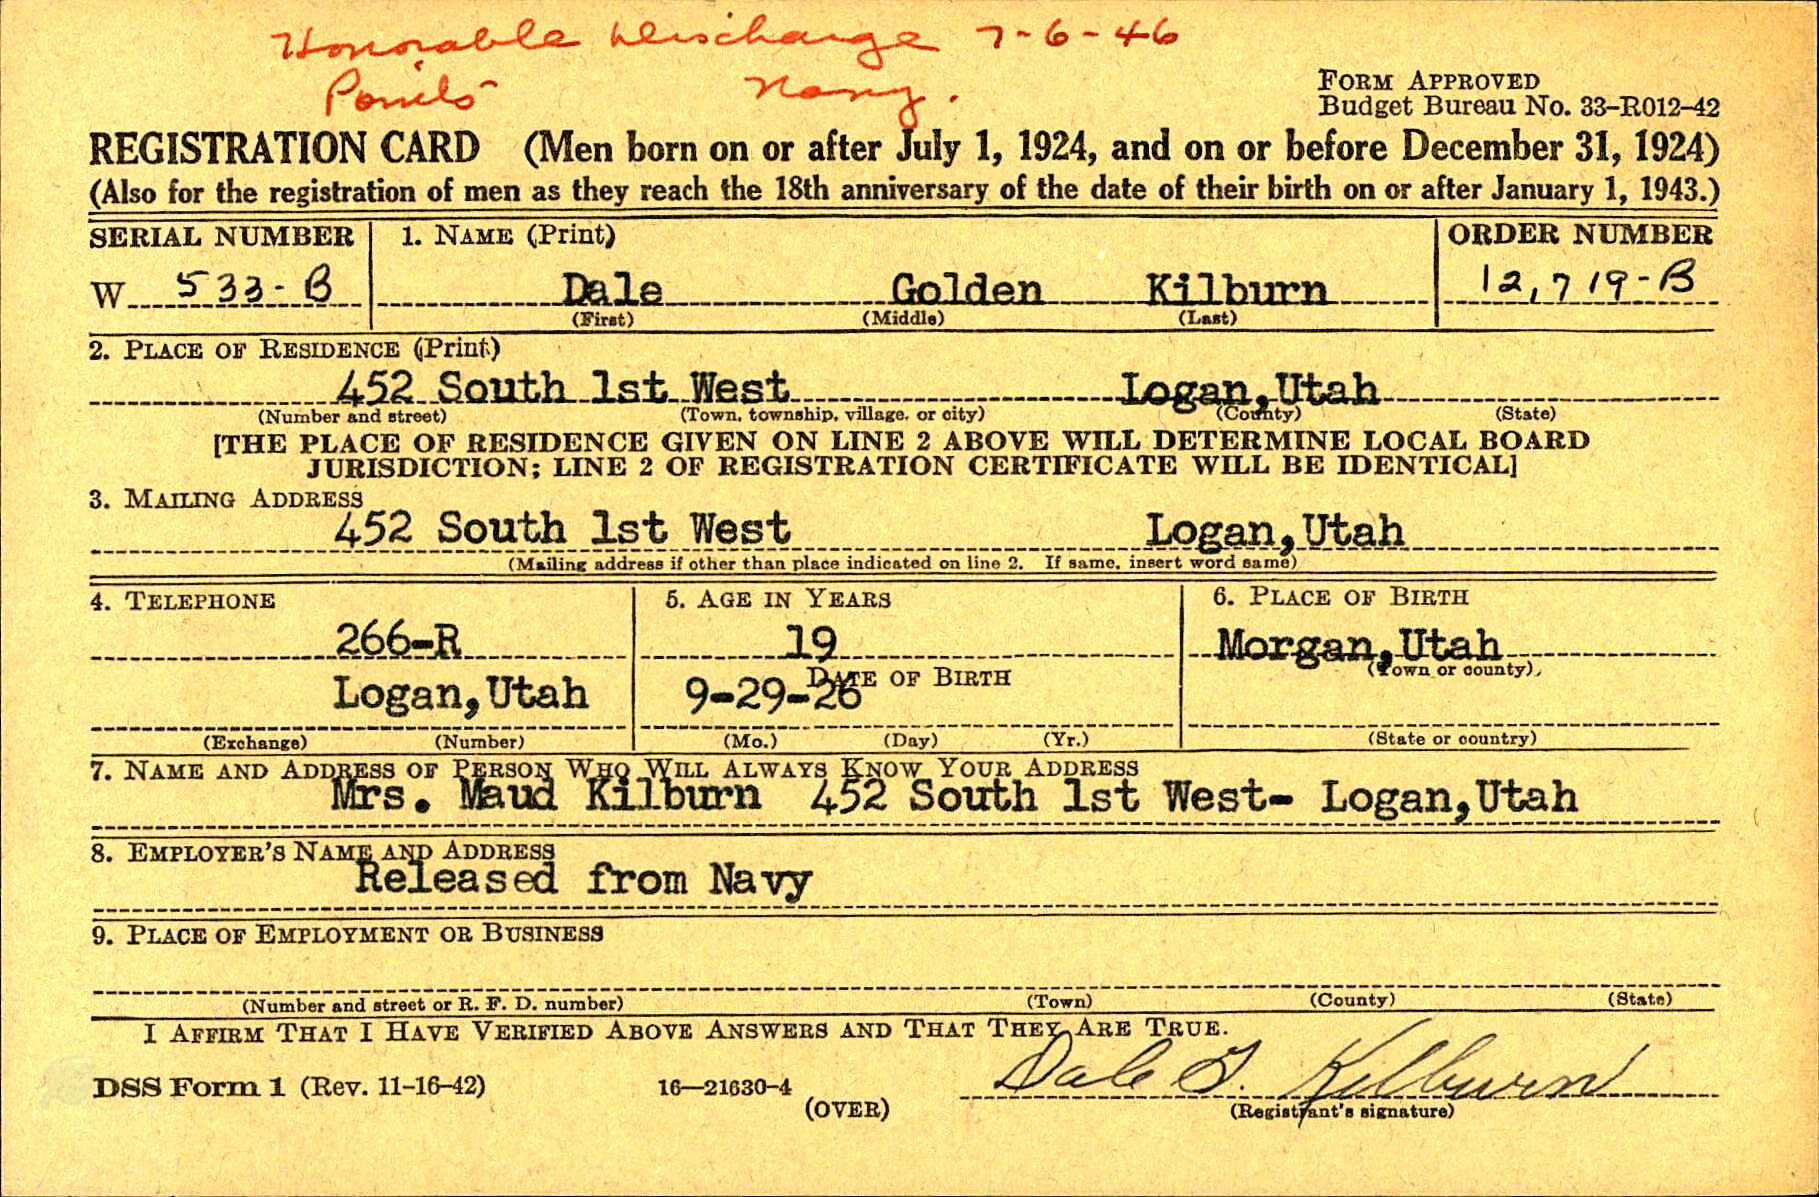 Honorable Discharge 7-6-46
Points Navy.
FORM APPROVED
Budget Bureau No. 33-R012-42
REGISTRATION CARD (Men born on or after July 1, 1924, and on or before December 31, 1924)
(Also for the registration of men as they reach the 18th anniversary of the date of their birth on or after January 1, 1943.)
SERIAL NUMBER 1. NAME (Print) ORDER NUMBER
W 533-B Dale Golden Kilburn 12,719-B
(First) (Middle) (Last)
2. PLACE OF RESIDENCE (Print)
452 South 1st West Logan,Utah
(Number and street) (Town, township, village, or city) (County) (State)
[THE PLACE OF RESIDENCE GIVEN ON LINE 2 ABOVE WILL DETERMINE LOCAL BOARD
JURISDICTION; LINE 2 OF REGISTRATION CERTIFICATE WILL BE IDENTICAL]
3. MAILING ADDRESS
452 South 1st West Logan,Utah
(Mailing address if other than place indicated on line 2. If same, insert word same)
4. TELEPHONE 5. AGE IN YEARS 6. PLACE OF BIRTH
266-R 19 Morgan,Utah
DATE OF BIRTH (Town or county)
Logan,Utah 9-29-26
(Exchange) (Number) (Mo.) (Day) (Yr.) (State or country)
7. NAME AND ADDRESS OF PERSON WHO WILL ALWAYS KNOW YOUR ADDRESS
Mrs. Maud Kilburn 452 South 1st West- Logan,Utah
8. EMPLOYER'S NAME AND ADDRESS
Released from Navy
9. PLACE OF EMPLOYMENT OR BUSINESS
(Number and street or R. F. D. number) (Town) (County) (State)
I AFFIRM THAT I HAVE VERIFIED ABOVE ANSWERS AND THAT THEY ARE TRUE.
DSS Form 1 (Rev. 11-16-42) 16—21630-4 Dale G. Kilburn
(OVER) (Registrant's signature)